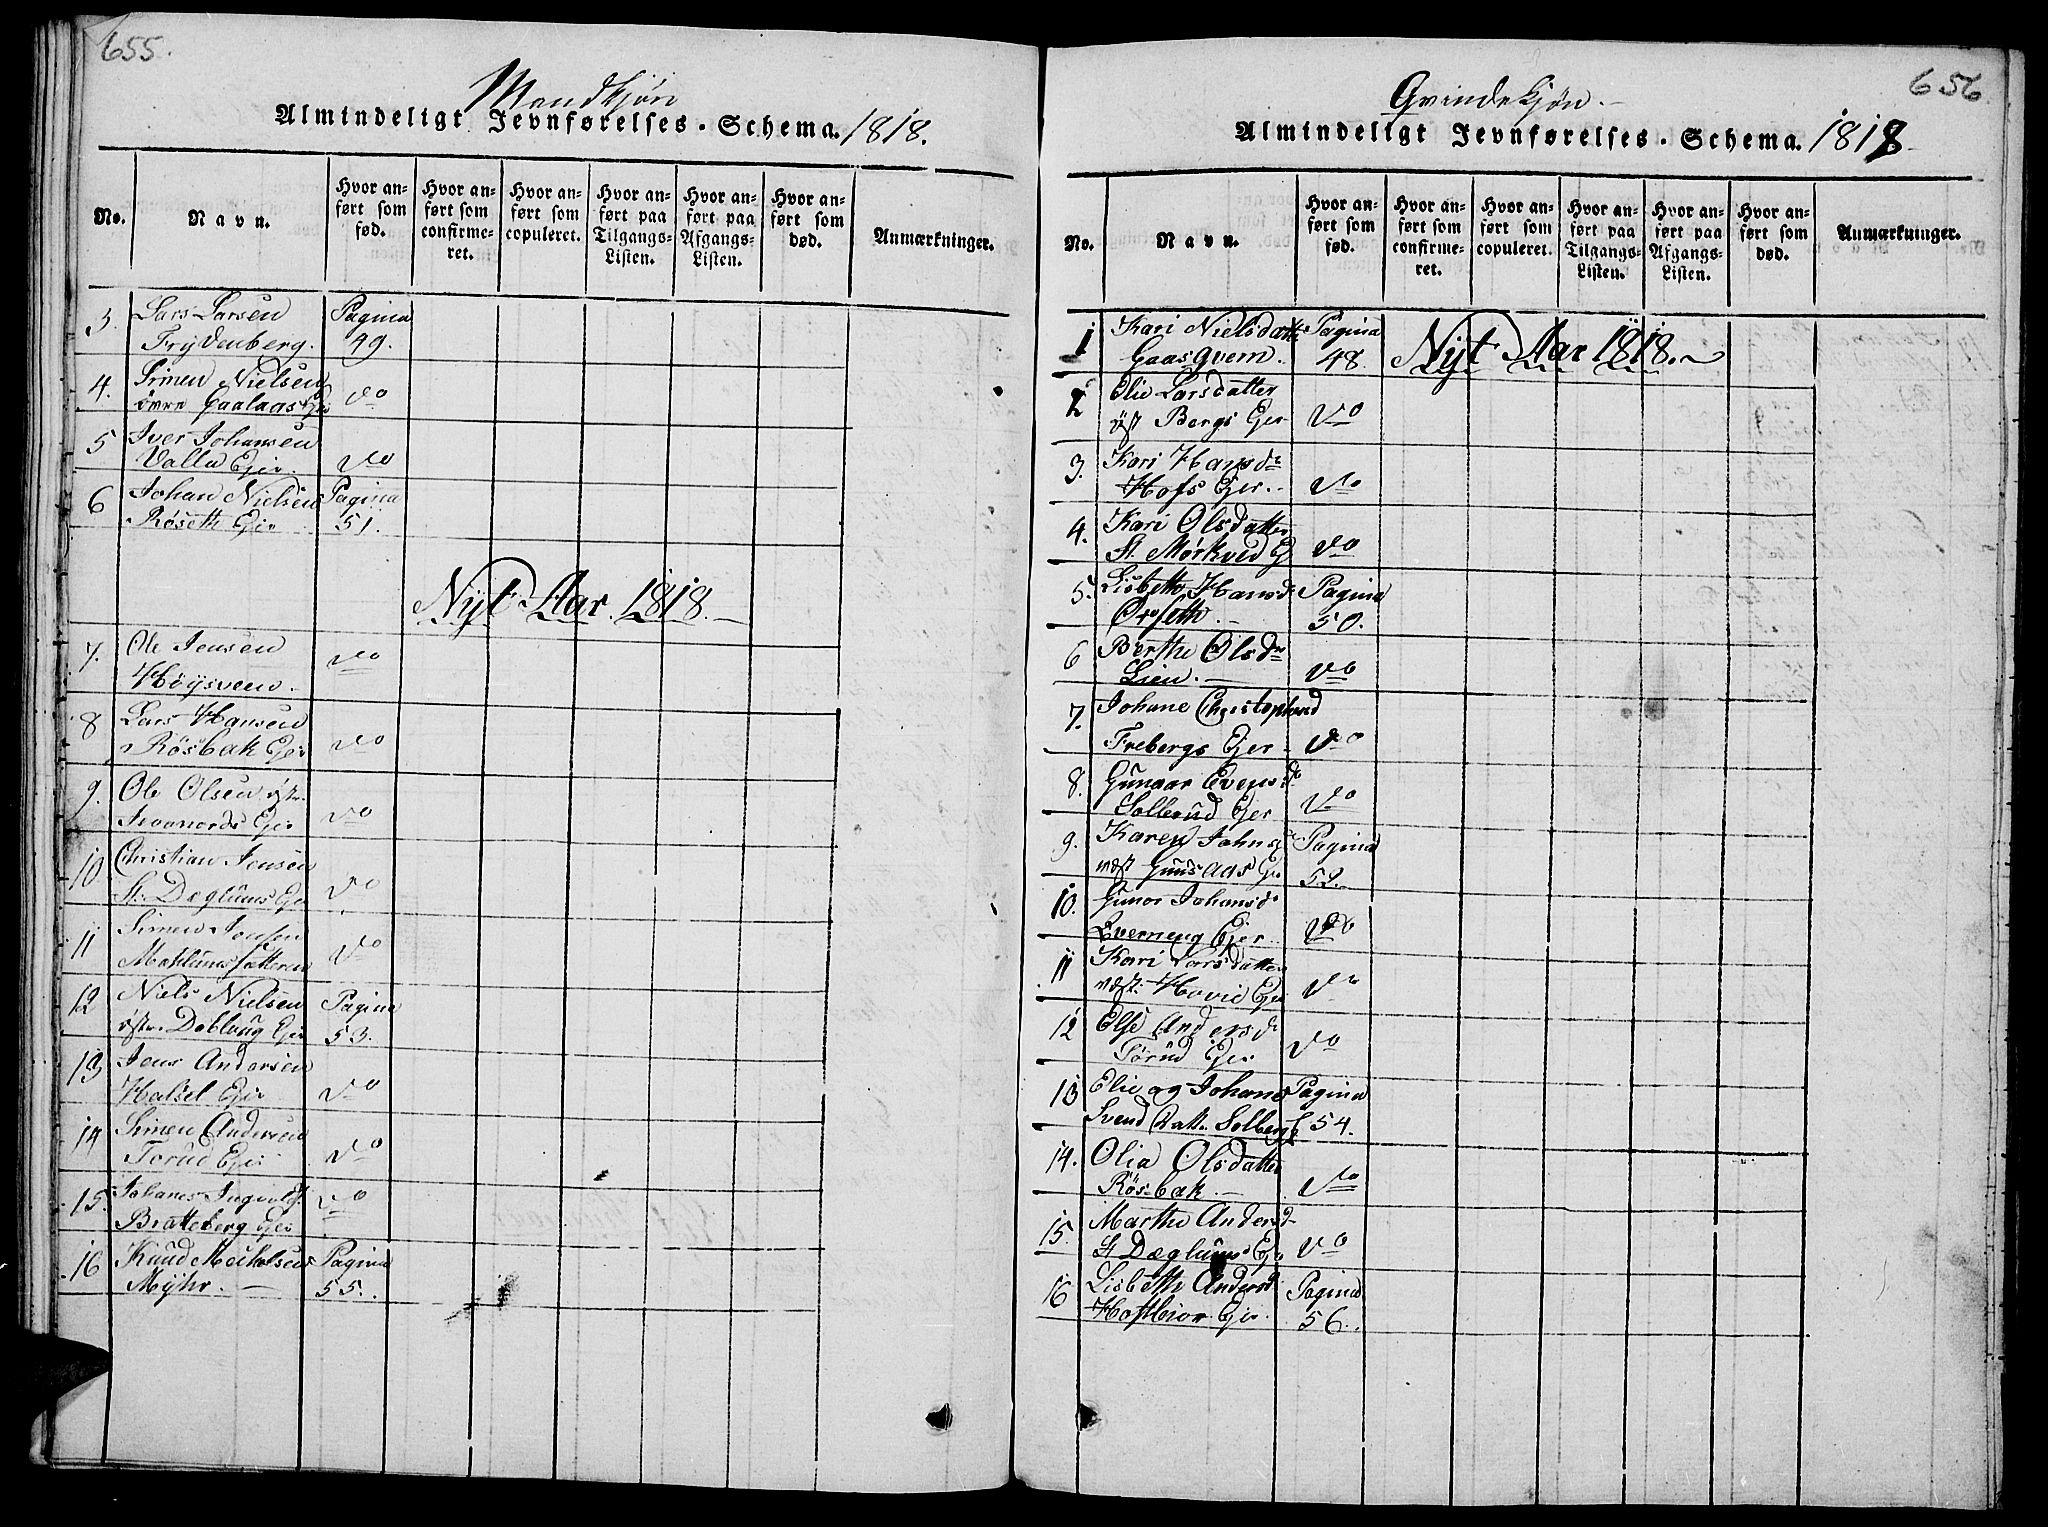 655.
Mandkjön
Almindeligt Jevnførelses-Schema. 1818.
No.
Navn.
Hvor anført som fød.
Hvor anført som confirmeret.
Hvor anført som copuleret.
Hvor anført paa Tilgangs-Listen.
Hvor anført paa Afgangs-Listen.
Hvor anført som død.
Anmærkninger.
3. Lars Larsen Pagina
Frydenberg. 49.
4. Simen Nielsen
övre Caalaas Eje do
5 Iver Johansen
Valla Ejer. do
6 Johan Nielsen Pagina
Röseth Eje 51.
Nyt Aar 1818.
7. Ole Jensen do
Höysveen.
8 Lars Hansen
Rösbak Eje do
9. Ole Olsen östr.
Eje do
10. Christian Jensen
St. Dæglums Eje do
11 Simen Jensen
do
12 Niels Nielsen Pagina
östr. Deblung Eje 53.
13 Jens Andersen
Halsel Eje do
14 Simen Andersen
Torud Eje do
15. Johanes Ingvolds. do
Bratteberg Eje
16 Knud Micholsen Pagina
Myhr. 55.
656
Qvindekjön.
Almindeligt Jevnførelses-Schema. 1818
No.
Navn.
Hvor anført som fød.
Hvor anført som confirmeret.
Hvor anført som copuleret.
Hvor anført paa Tilgangs-Listen.
Hvor anført paa Afgangs-Listen.
Hvor anført som død.
Anmærkninger.
1 Kari Nielsdatt. Pagina
Gaasqvern. 48. Nyt Aar 1818.
2 Elie Larsdatter
öst Bergs Ejer do
3. Kari Hansdr
Hofs Ejer. do
4. Kari Olsdatter
St. Mörkved E do
5. Lisbeth Hansd. Pagina
Örseth. 50.
6 Berthe Olsdr
Lien. do
7. Johane Christophersd
Frebergs Ejer do
8. Gunaar Evensd.
Sollerud Ejer do
9. Karen Johnsd. Pagina
vest Eje 52.
10. Gunor Johansdr
Everneng Ejer do
11 Kari Larsdatter
vest. Hovie Eje do
12 Else Andersdr
Törud Eje do
13 Elie og Johane Pagina
Svend Datt. Solberg 54.
14. Olia Olsdatter
Rösbak do
15. Marthe Andersd
St Dæglums Eje do
16 Lisbeth Andersd Pagina
Eje 56.